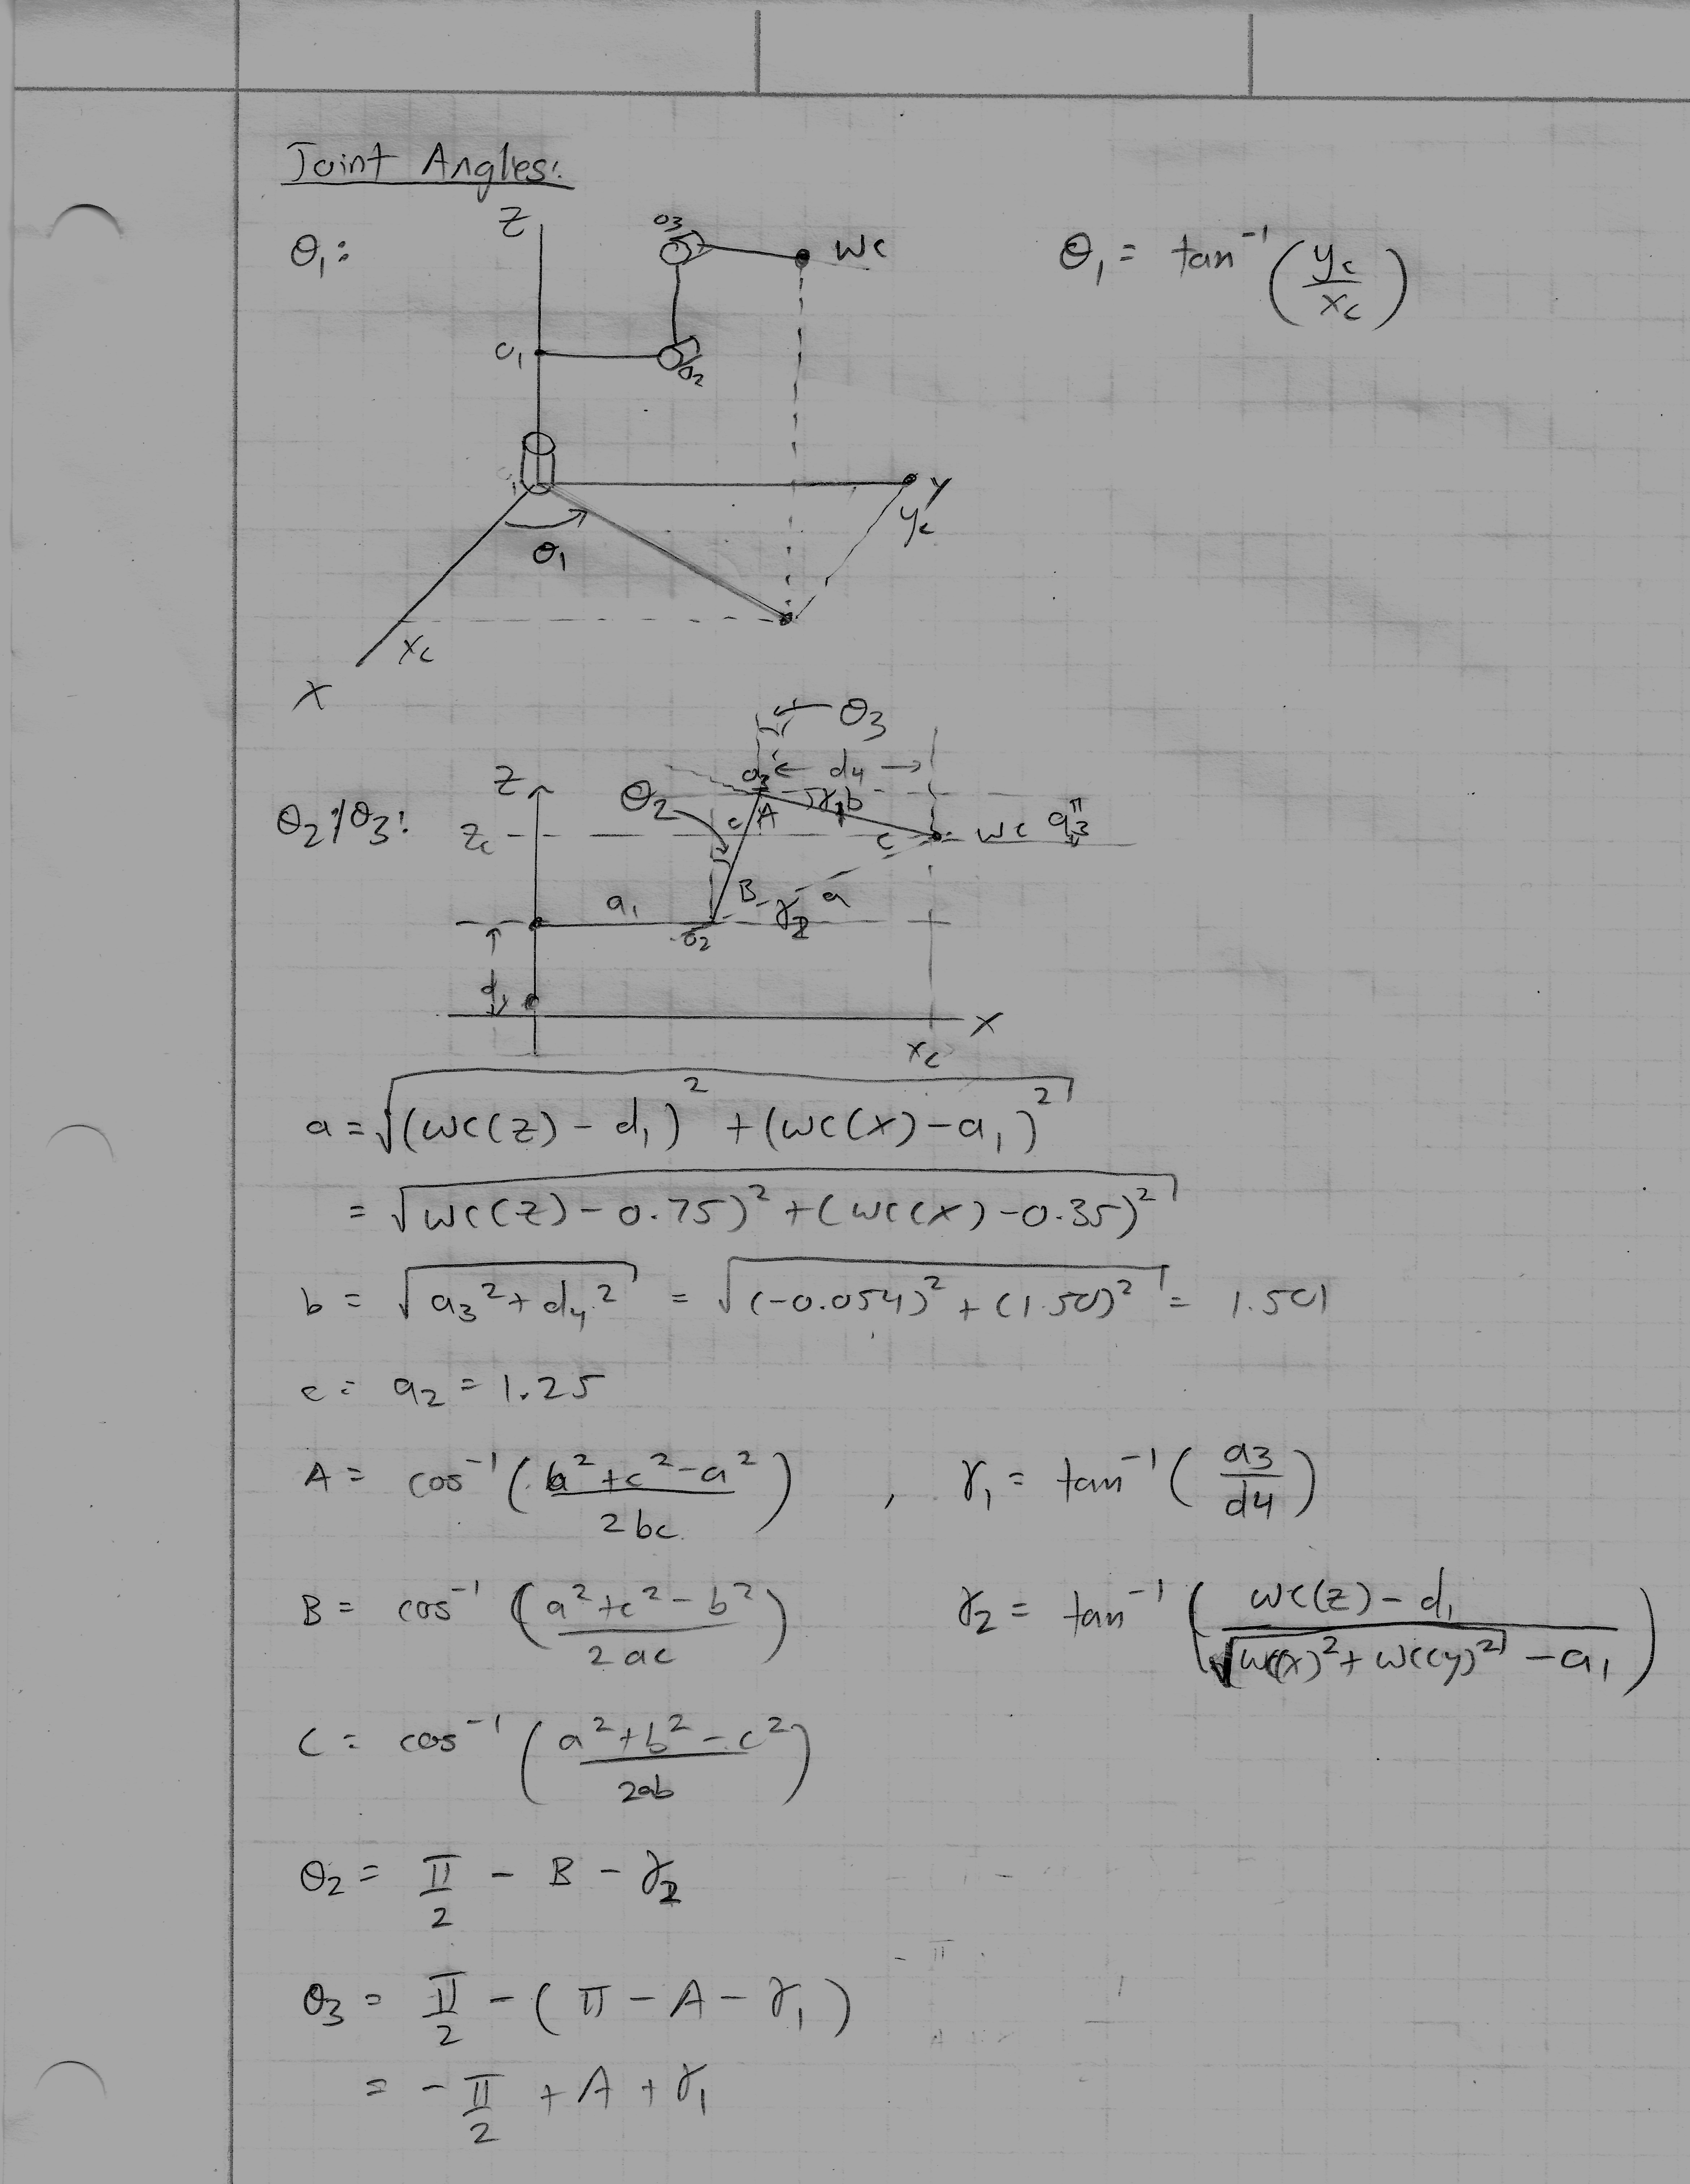 Joint Angles:
θ₁:
Z
O₃
WC
θ₁ = tan⁻¹(y_c/x_c)
O₁
O₂
y
y_c
θ₁
x_c
X
θ₃
θ₂/θ₃:
Z
θ₂
O₃
d₄
γ₁
b
A
c
z_c
C
WC
a₃
a₁
B
γ₂
a
O₂
d₁
X
x_c
a = √((WC(z) - d₁)² + (WC(x) - a₁)²)
= √(WC(z) - 0.75)² + (WC(x) - 0.35)²
b = √(a₃² + d₄²) = √((-0.054)² + (1.50)²) = 1.501
c = a₂ = 1.25
A = cos⁻¹((b² + c² - a²)/2bc) , γ₁ = tan⁻¹(a3/d4)
B = cos⁻¹((a² + c² - b²)/2ac) γ₂ = tan⁻¹((WC(z) - d₁)/(√(WC(x)² + WC(y)²) - a₁))
C = cos⁻¹((a² + b² - c²)/2ab)
θ₂ = π/2 - B - γ₂
θ₃ = π/2 - (π - A - γ₁)
= -π/2 + A + γ₁